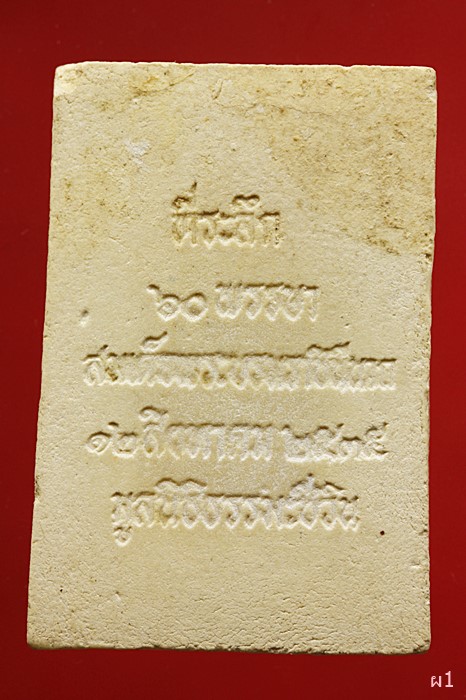 ที่ระลึก
๖๐ พรรษา
สมเด็จพระบรมราชินีนาถ
๑๒ สิงหาคม ๒๕๓๕
มูลนิธิธรรมะชีวิน
ผ1